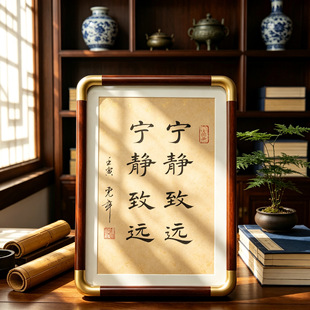 宁静致远
宁静致远
壬寅